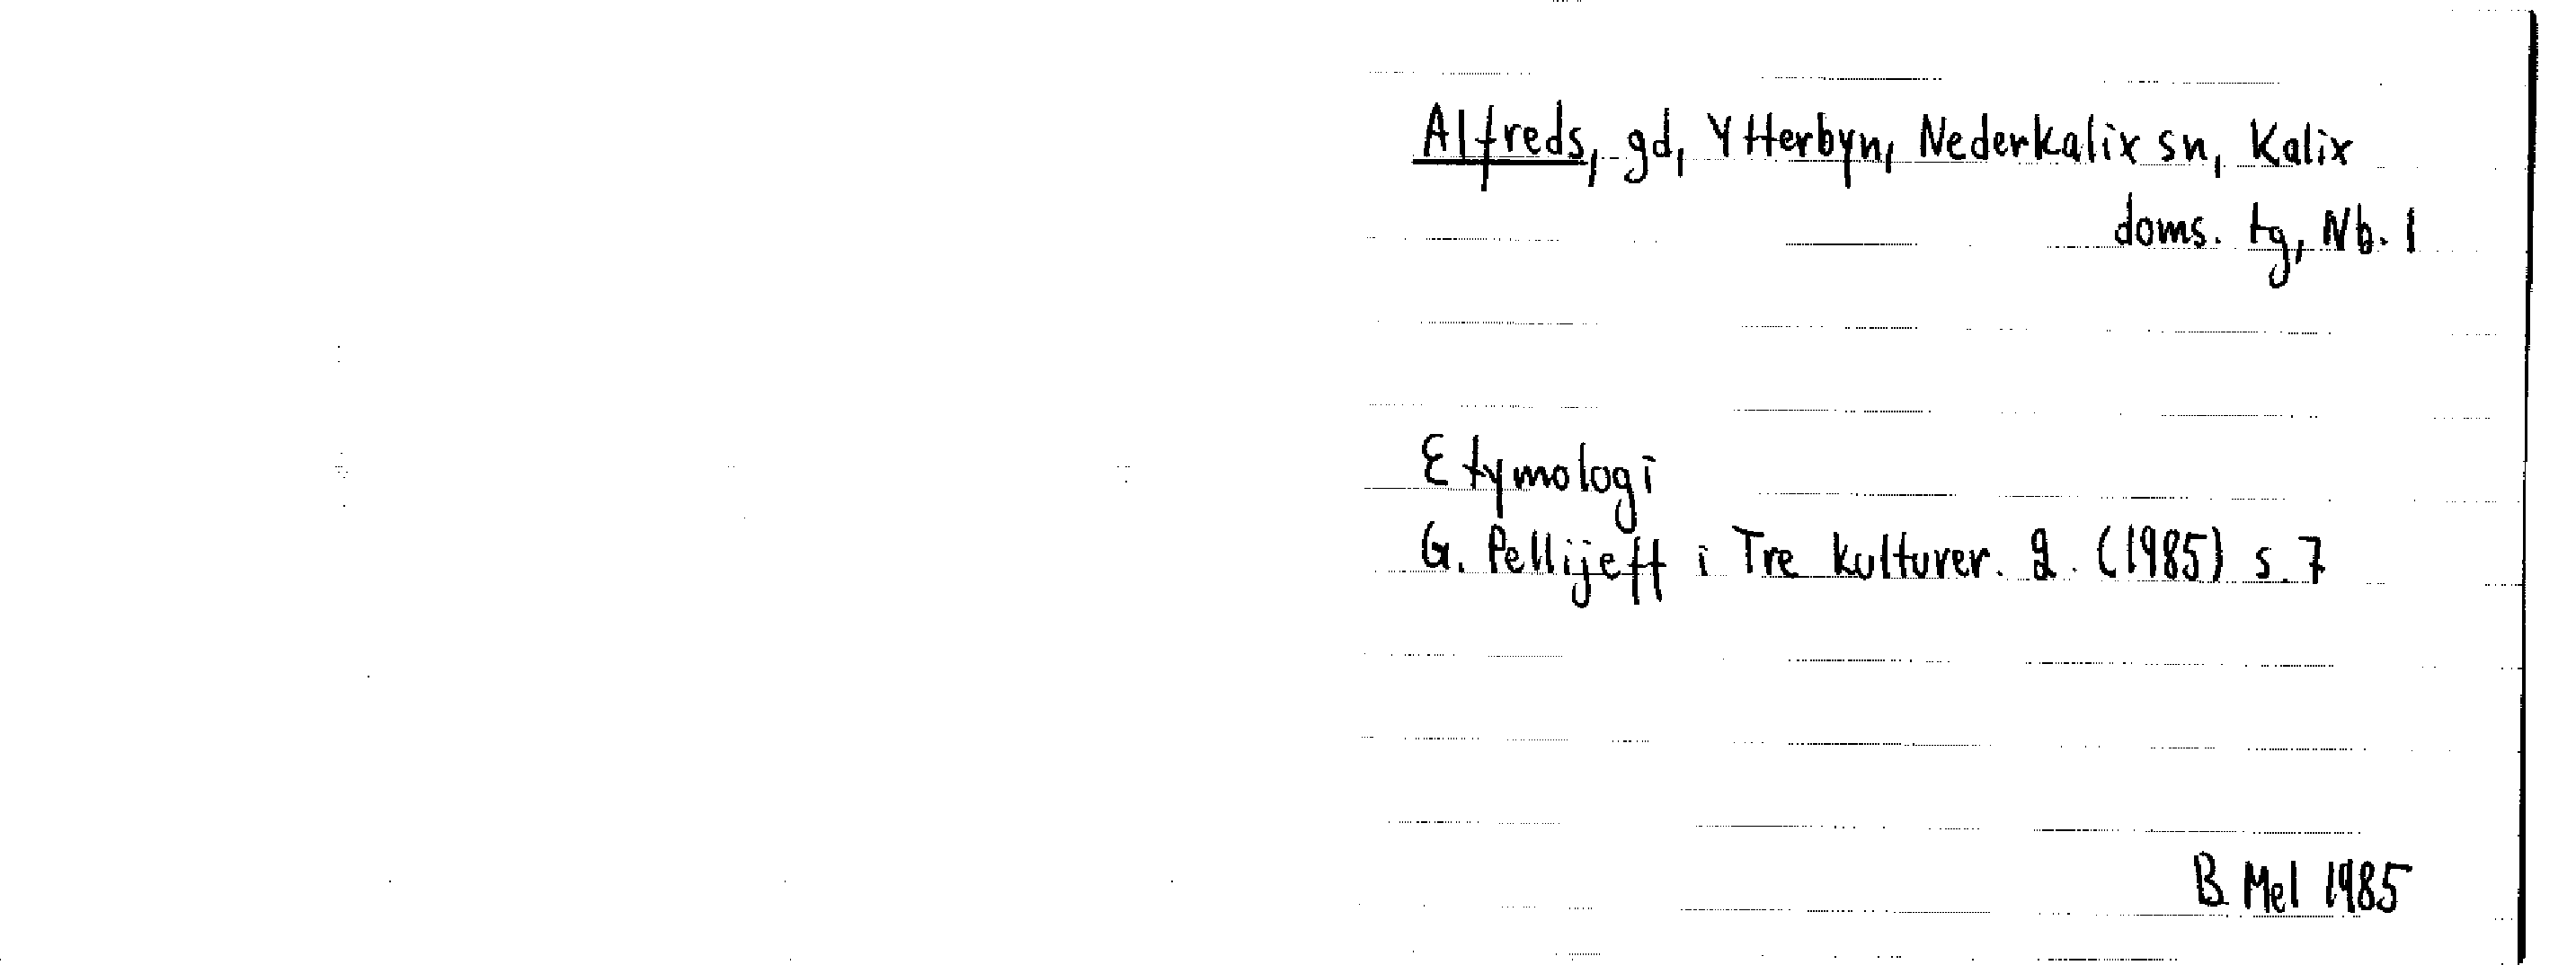 Alfreds, gd, Ytterbyn, Nederkalix sn, Kalix
doms. tg, Nb. 1
Etymologi
G. Pellijeff i Tre kulturer. 2. (1985) s. 7
B. Mel 1985